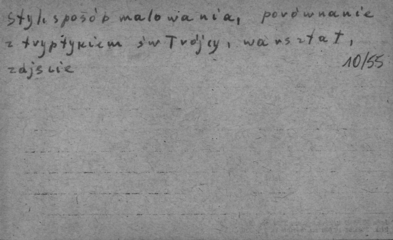 styl i sposób malowania, porównanie
z tryptykiem św Trójcy, warsztat,
zajście
10/55